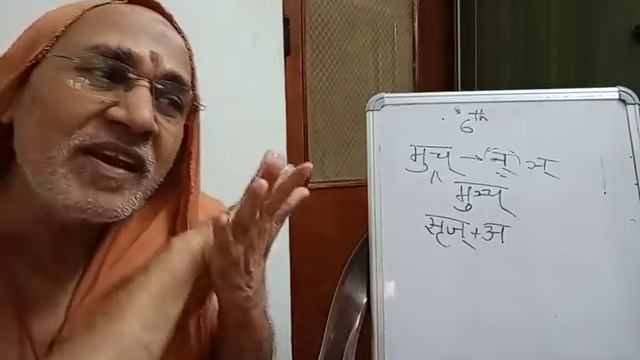 6th
मुच् → (न्) ञ्
मुञ्च्
सृज् + अ